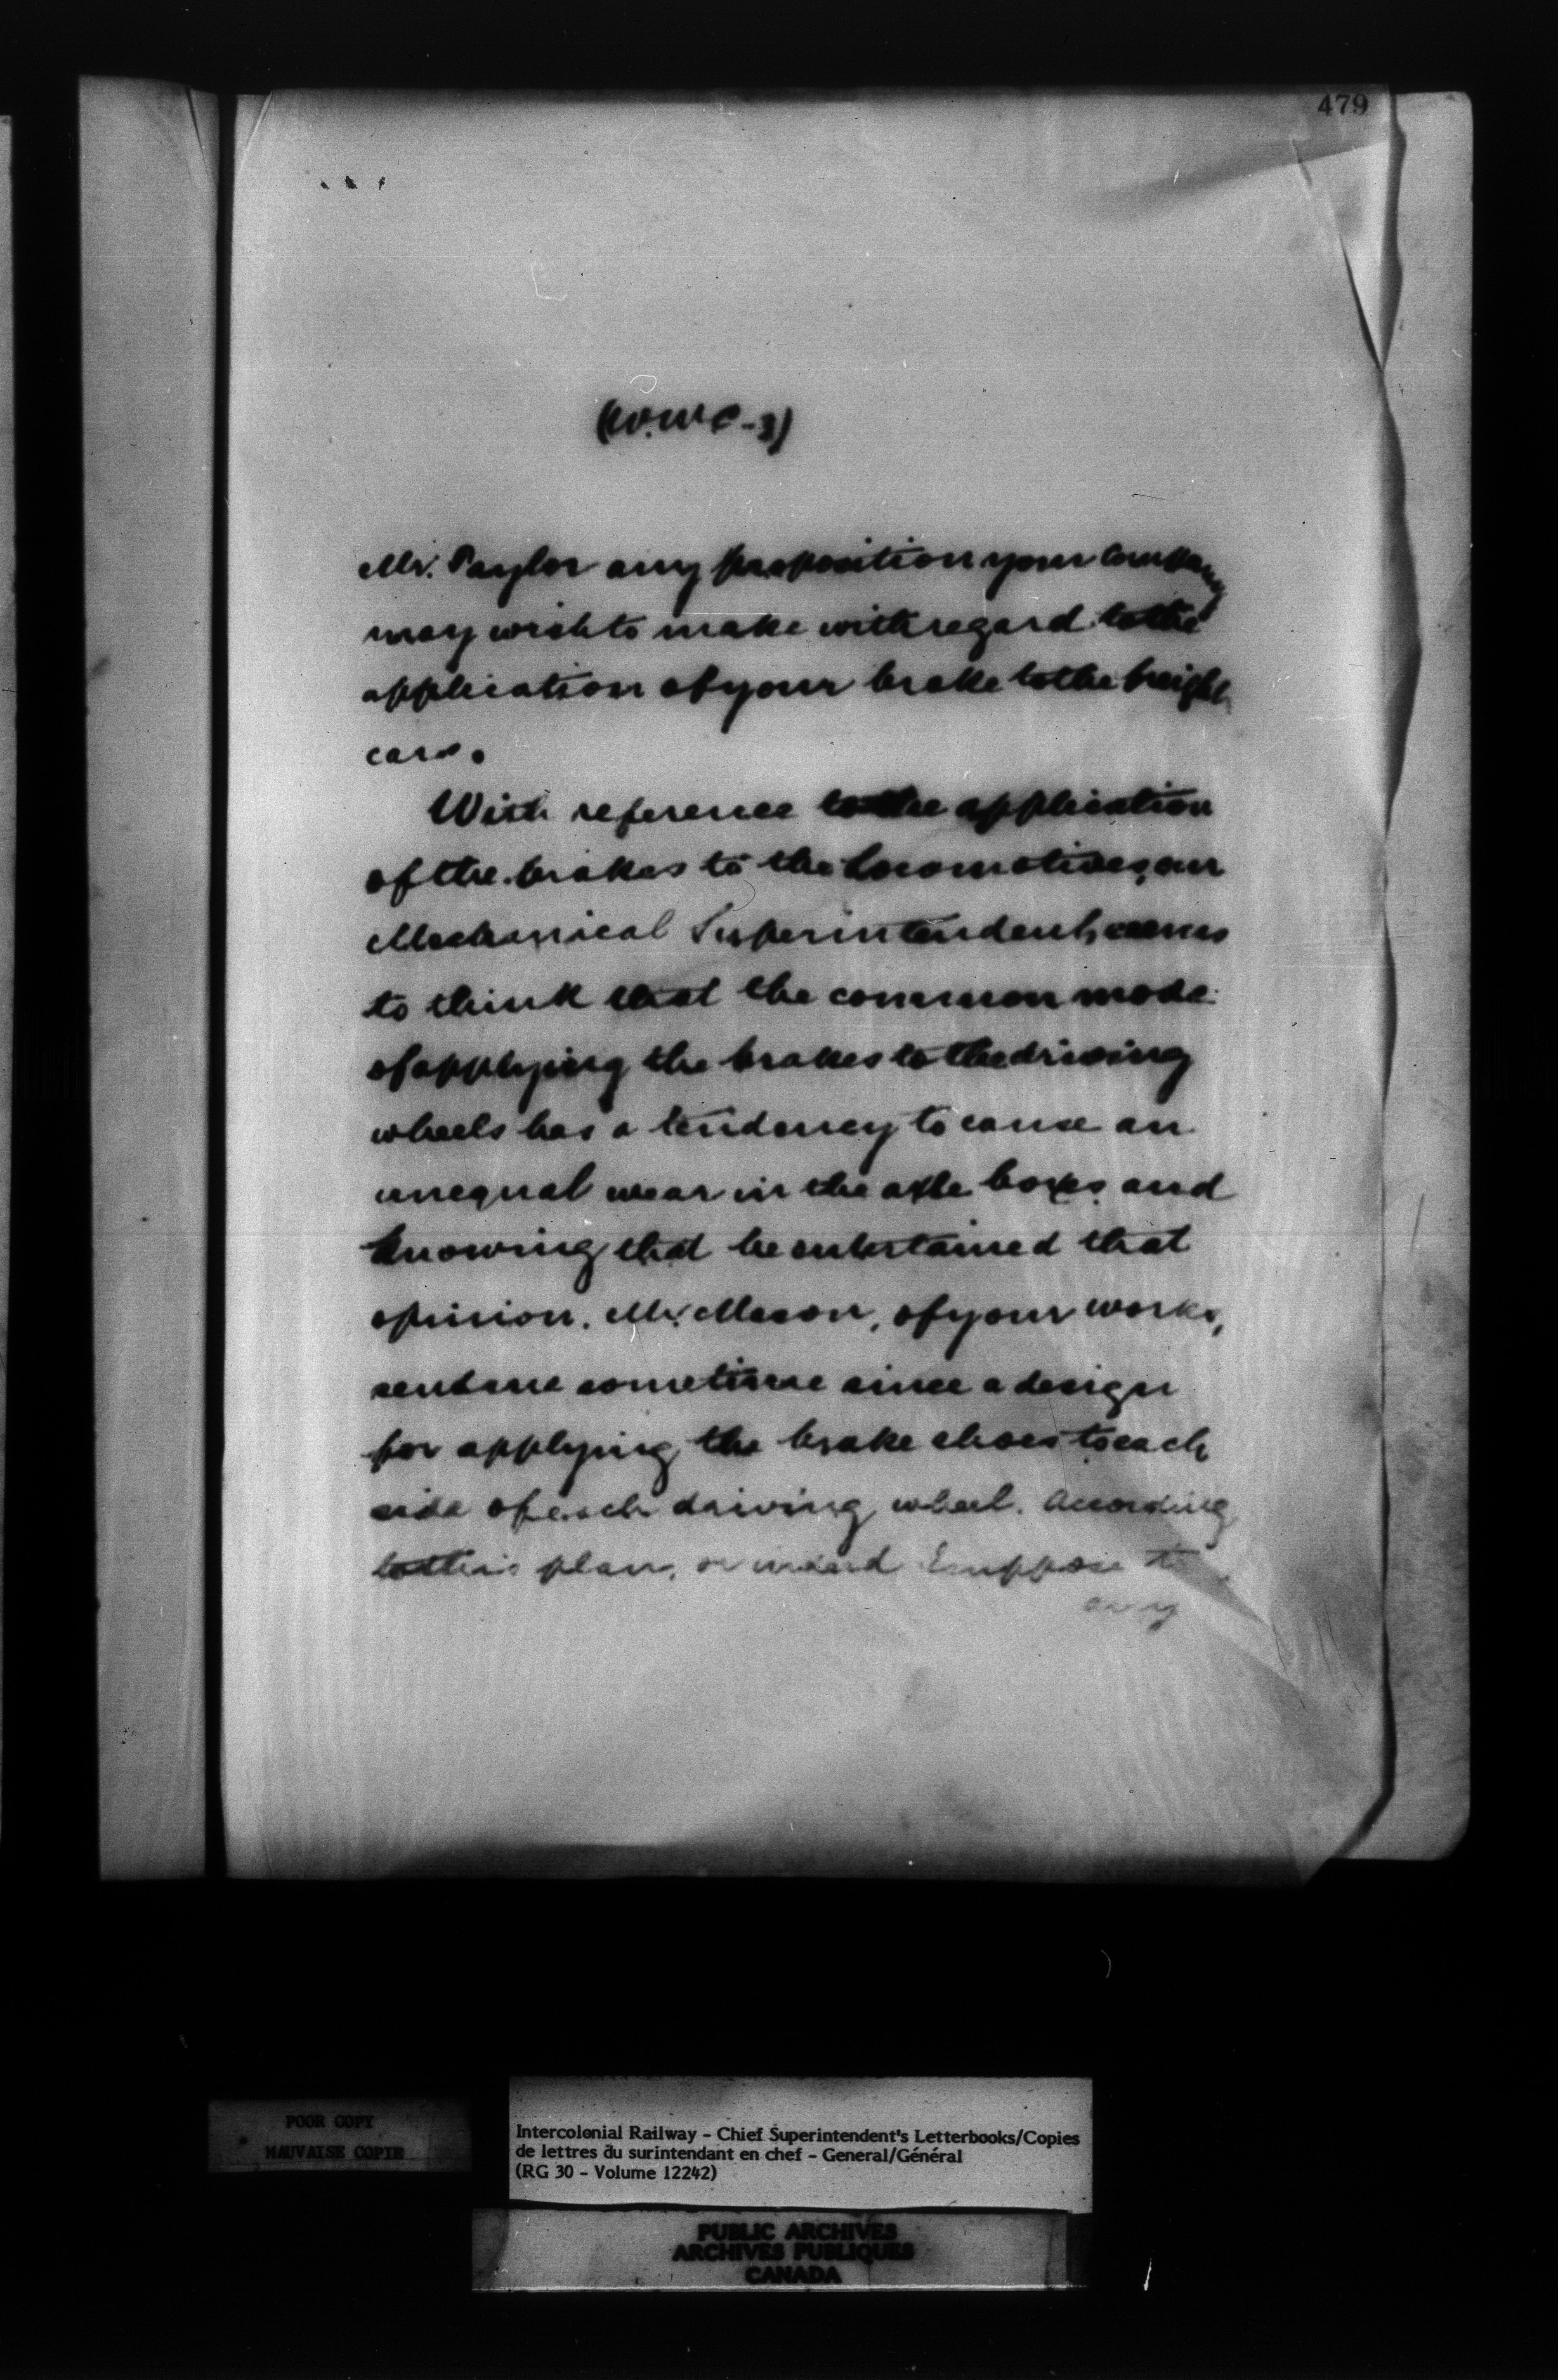 479
(W.W.C-3)
Mr. Taylor any proposition your Company
may wish to make with regard to the
application of your brake to the freight
cars.
With reference to the application
of the brakes to the locomotives, our
Mechanical Superintendent, seems
to think that the common mode
of applying the brakes to the driving
wheels has a tendency to cause an
unequal wear in the axle boxes and
knowing that he entertained that
opinion, Mr. Mason, of your works,
sent me sometime since a design
for applying the brake shoes to each
side of each driving wheel. According
to this plan, or indeed I suppose to
any
POOR COPY
MAUVAISE COPIE
Intercolonial Railway - Chief Superintendent's Letterbooks/Copies
de lettres du surintendant en chef - General/Général
(RG 30 - Volume 12242)
PUBLIC ARCHIVES
ARCHIVES PUBLIQUES
CANADA